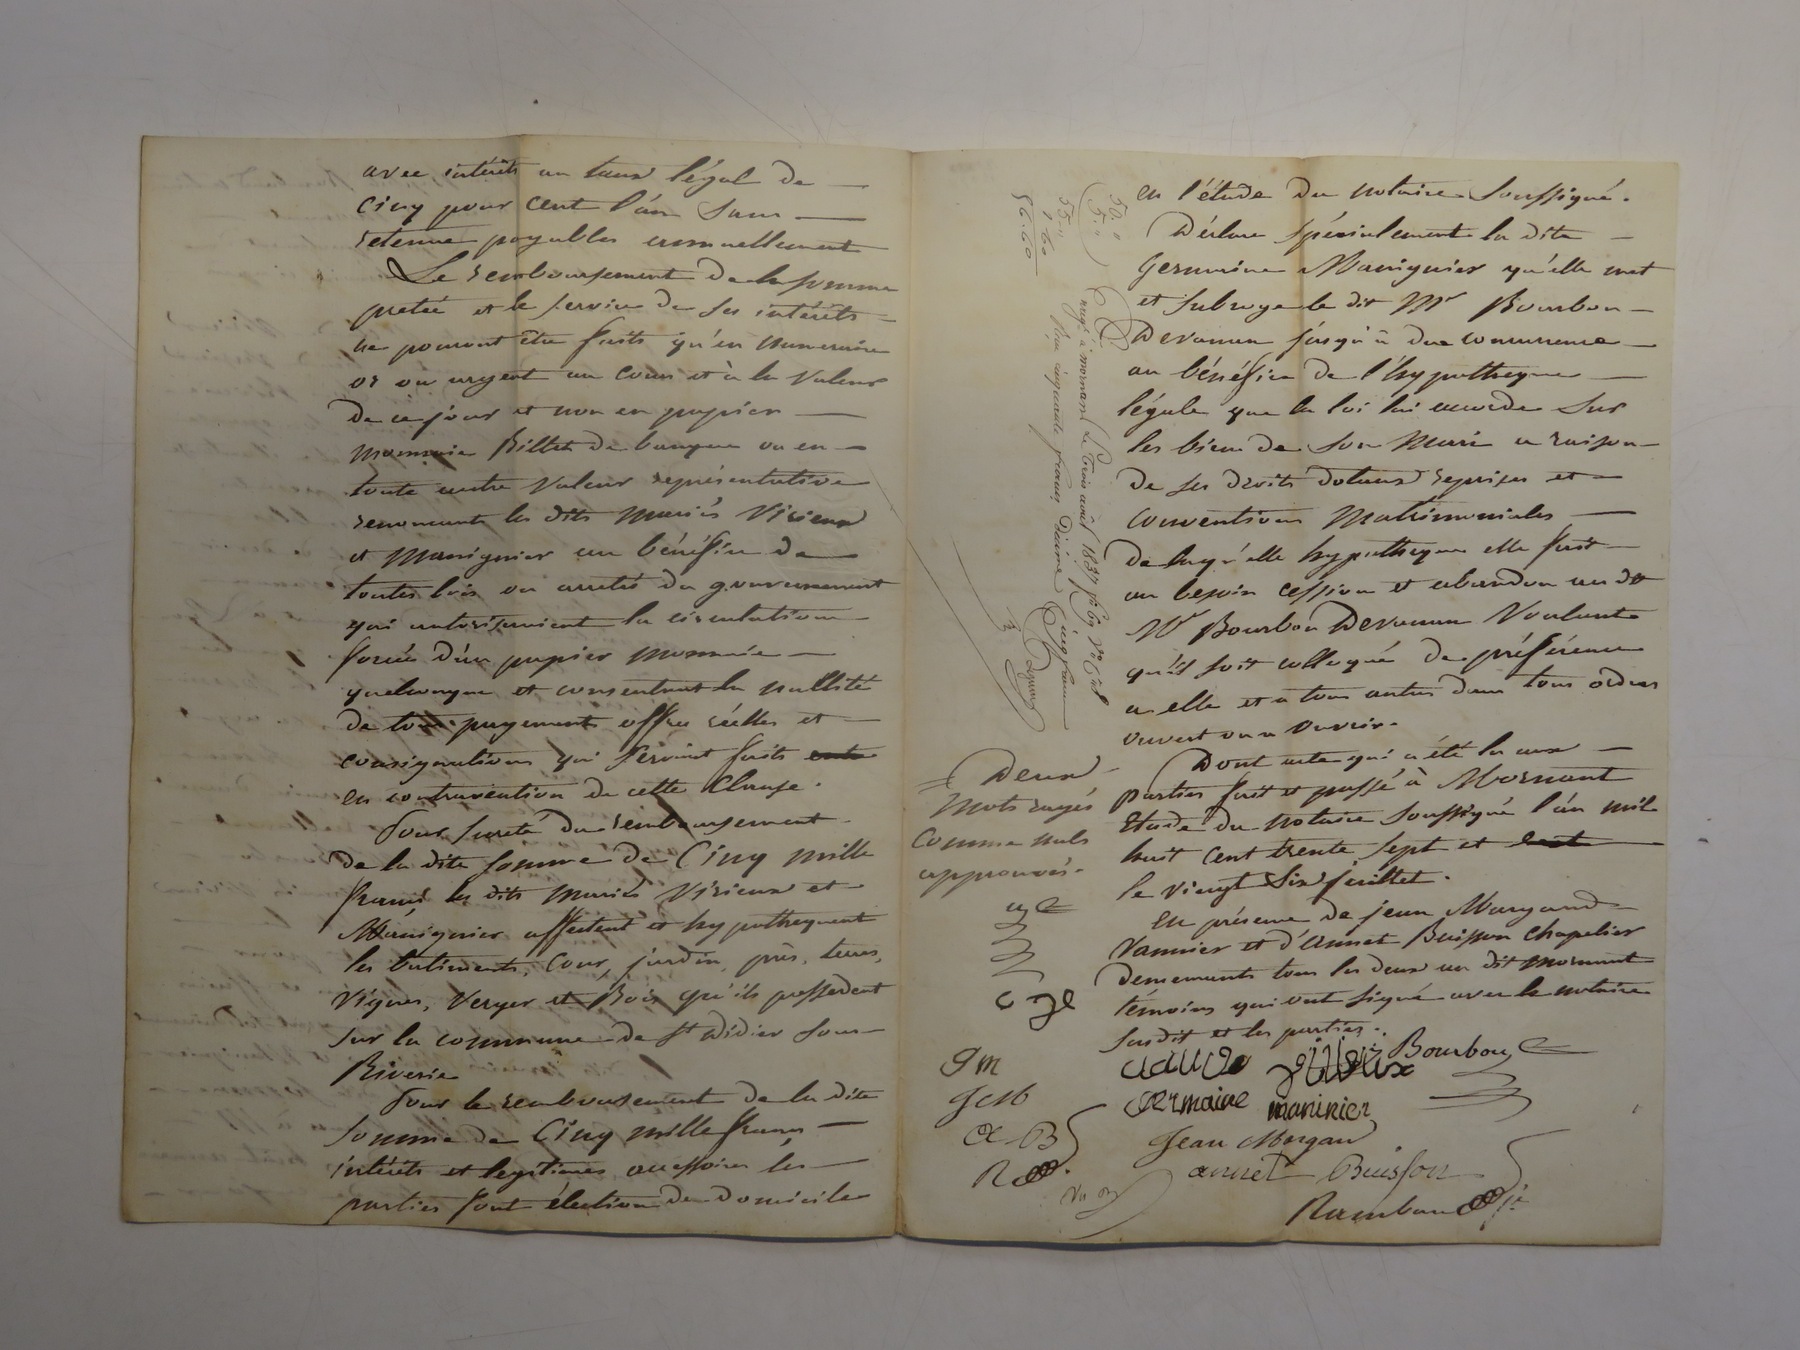 avec intérêts au taux légal de —
Cinq pour cent l'an sans —
retenue payables annuellement
Le remboursement de la somme
pretée et le service de ses intérêts —
ne pouront être faits qu'en numeraire
or ou argent au cours et à la valeur
de ce jour et non en papier —
monnaie Billet de banque ou en —
toute autre valeur représentative
renoncant les dits mariés Virieux
et Manignier au bénéfice de —
toutes lois ou arretés du gouvernement
qui autoriseroient la circulation
forcée d'un papier monnaie —
quelconque et consentent la nullité
de tous payements offres réelles et —
consignations qui seroient faits
en contravention de cette Clause.
Pour sureté du remboursement
de la dite somme de Cinq mille
francs les dits mariés Virieux et —
Manignier affectent et hypothequent
les batiments, Cour, jardin, près, terres,
Vignes, Verger et Bois qu'ils possedent
sur la commune de St Didier sous —
Riverie
Pour le remboursement de la dite
somme de Cinq mille francs —
intérêts et legitimes accessoires les —
parties font élection de domicile
en l'étude du notaire soussigné.
Déclare spécialement la dite —
Germaine Manignier qu'elle met
et subroge le dit Mr Bourbon —
Devanan jusqu'à due concurrence —
au bénéfice de l'hypotheque —
légale que la loi lui accorde sur
les biens de son mari a raison —
de ses droits dotaux reprises et —
conventions matrimoniales —
de laqu'elle hypotheque elle fait —
au besoin cession et abandon au dt
Mr Bourbon Devanan Voulant
qu'il soit colloqué de préférence
a elle et a tous autres dans tous ordres
ouvert ou a ouvrir.
Dont acte qui a été lu aux —
parties fait et passé à Mornant
Etude du notaire soussigné l'an mil
huit cent trente sept et —
le vingt six juillet.
en présence de jean Margand
Vannier et d'annet Buisson chapelier
demeurants tous les deux au dit mornant
témoins qui ont signé avec le notaire
susdit et les parties.
claude Bourbon
Germaine maninier
Jean Morgan
annet Buisson
Rambaud
Deux
mots rayés
comme nuls
approuvés.
gm
JeM
a B
R
50. "
5. "
55. "
1. 60
56. 60
Enregé à mornant Le trois août 1837
Reçu cinquante francs Décime Cinq francs